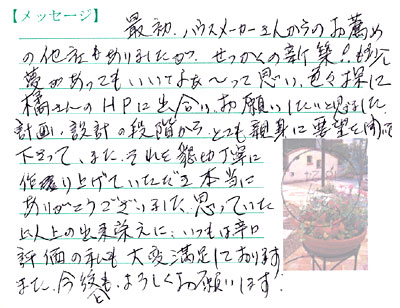 【メッセージ】
最初、ハウスメーカーさんからのお薦め
の他社もありましたが、せっかくの新築!!もう少し
夢があってもいいよなぁ〜って思い、色々探して
橘さんのHPに出合い、お願いしたいと思いました。
計画・設計の段階から とても親身に要望を聞いて
下さって、また、それを懇切丁寧に
作り上げていただき本当に
ありがとうございました。思っていた
以上の出来栄えに、いつもは辛口
評価の私も大変満足しております
また、今後とも、よろしくお願いします!